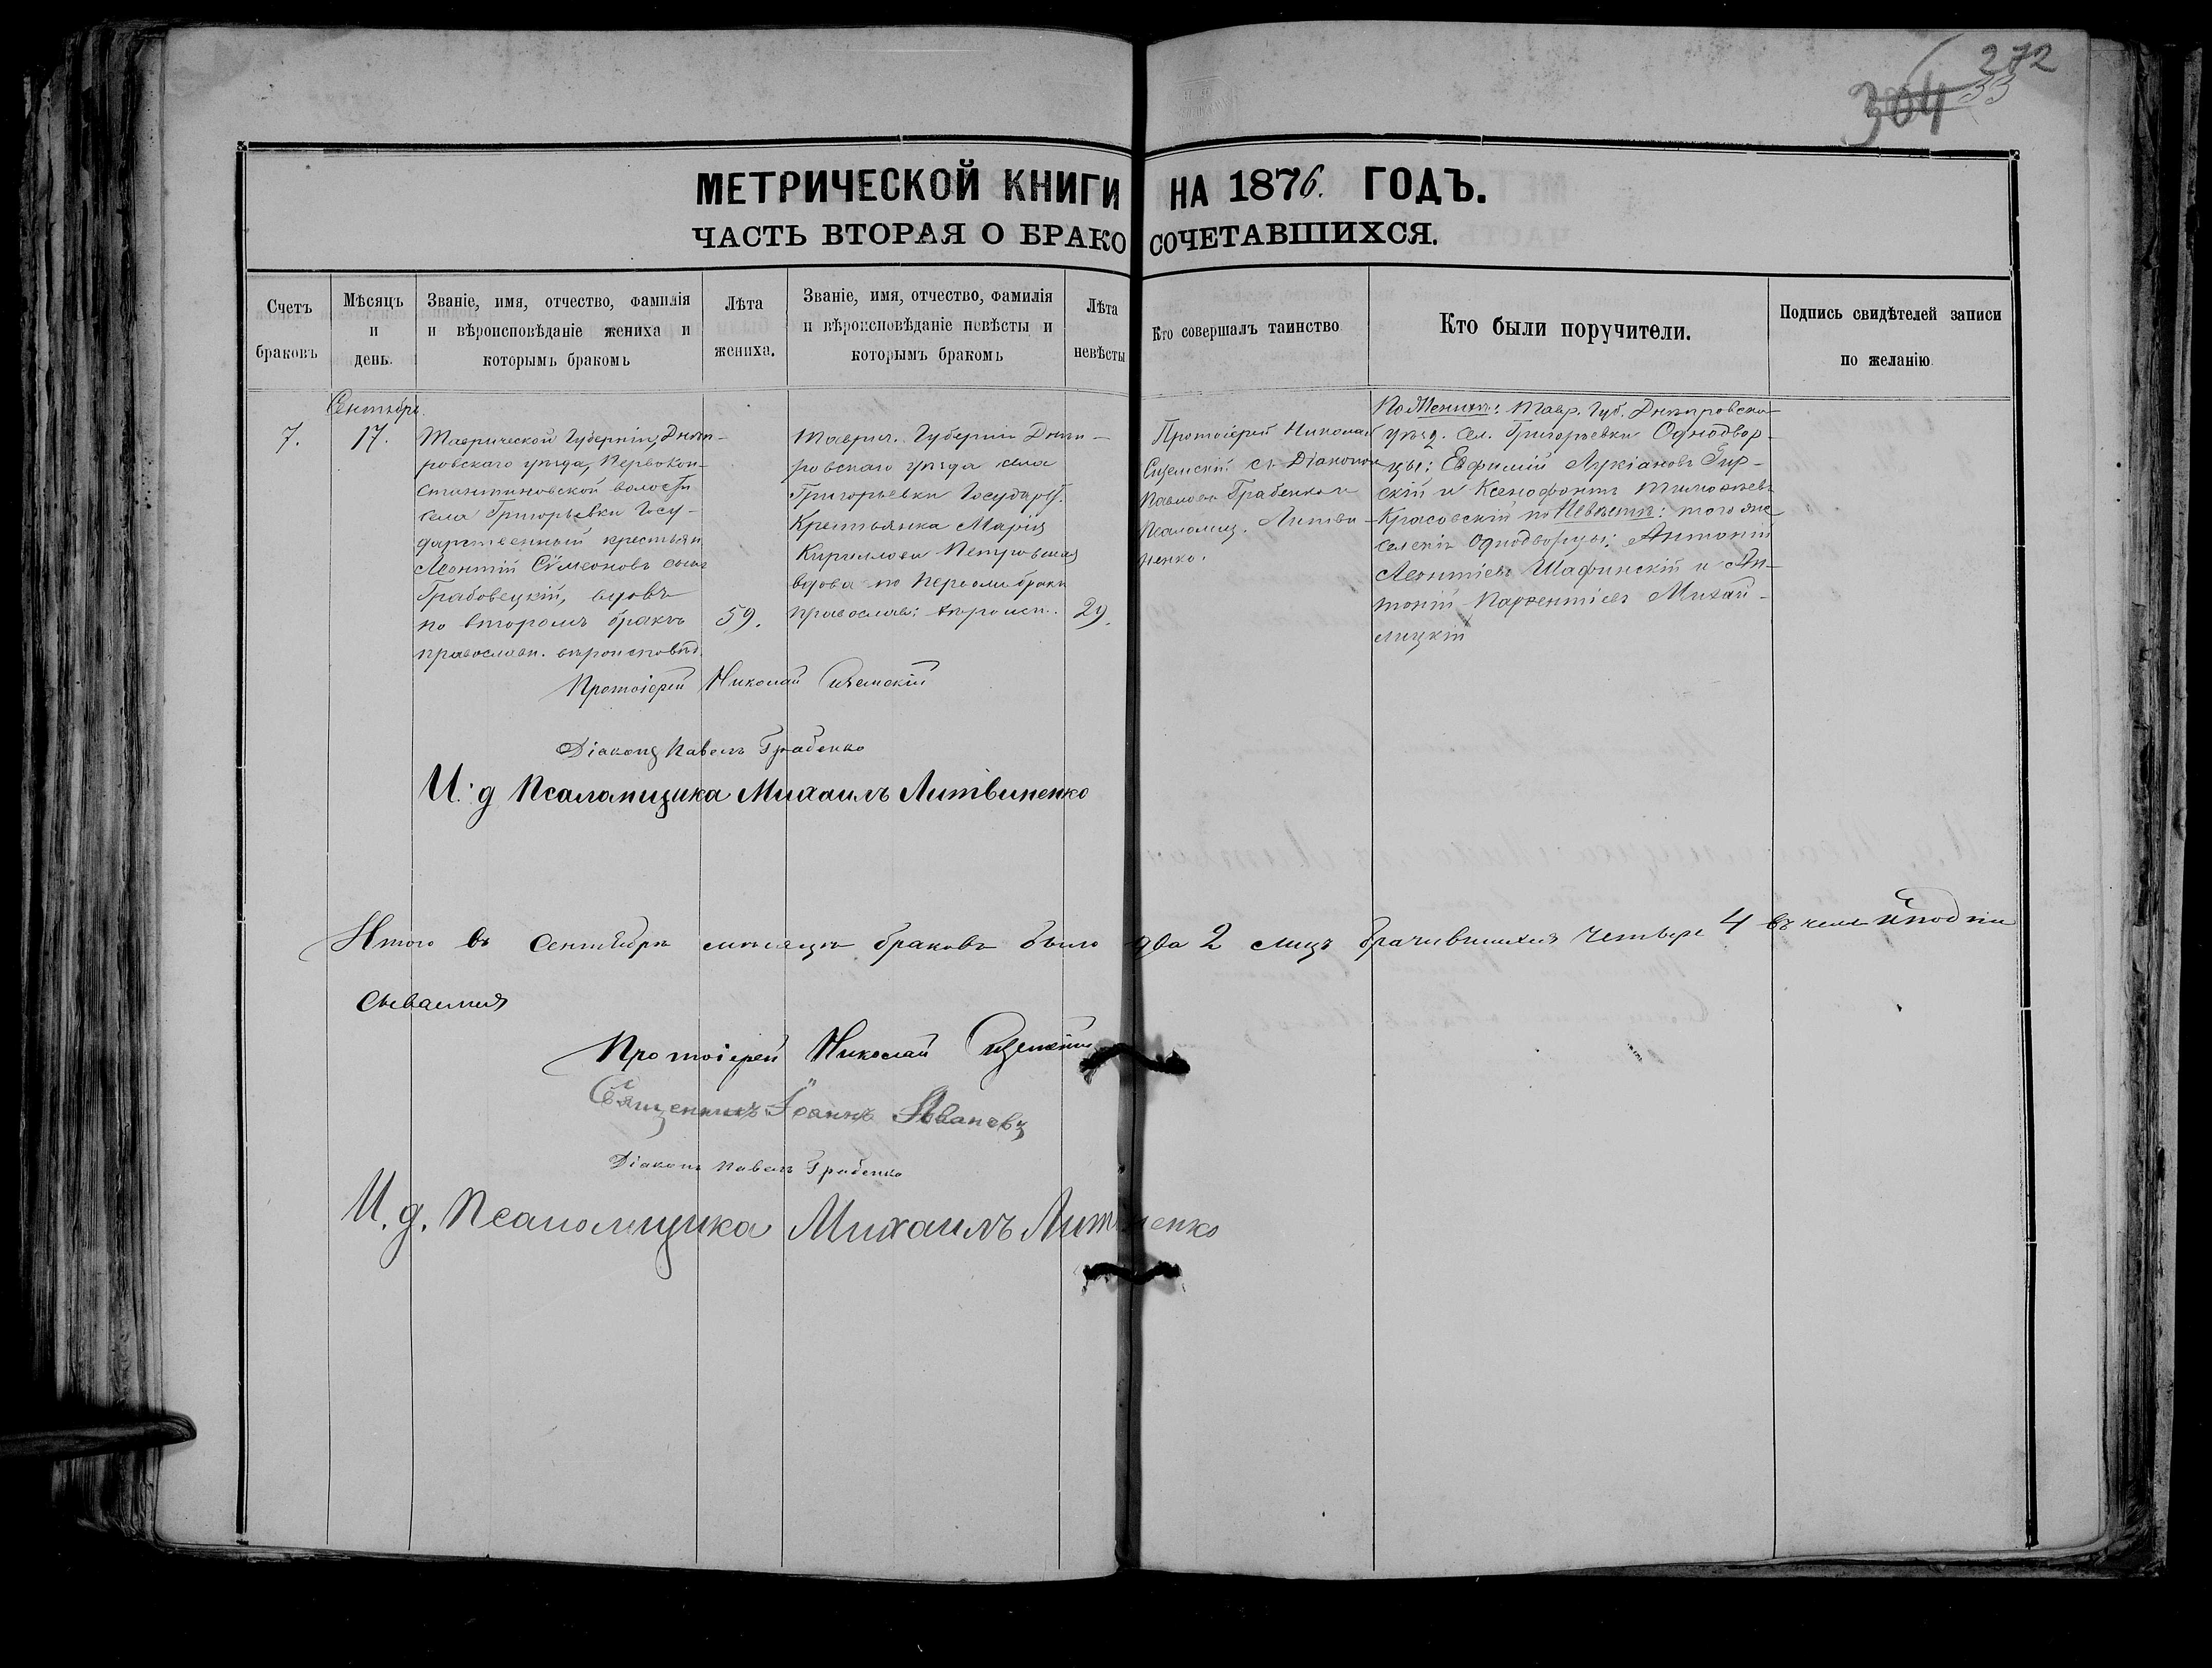 272
304 33
МЕТРИЧЕСКОЙ КНИГИ НА 1876. ГОДЪ.
ЧАСТЬ ВТОРАЯ О БРАКОСОЧЕТАВШИХСЯ.
Счетъ браковъ
Мѣсяцъ и день.
Званіе, имя, отчество, фамилія и вѣроисповѣданіе жениха и которымъ бракомъ
Лѣта жениха.
Званіе, имя, отчество, фамилія и вѣроисповѣданіе невѣсты и которымъ бракомъ
Лѣта невѣсты
Кто совершалъ таинство.
Кто были поручители.
Подпись свидѣтелей записи по желанію.
Сентябрь.
7.
17.
Таврической Губерніи, Днѣп-
ровскаго уѣзда, Первокон-
стантиновской волости
села Григорьевки Госу-
дарственный крестьян
Леонтій Сѵмеоновъ сынъ
Грабовецкій, вдовъ
по второмъ бракѣ
православн. вѣроисповѣд.
59.
Таврич. Губерніи Днѣп-
ровскаго уѣзда села
Григорьевки Государст.
Крестьянка Марія
Кириллова Петровская
вдова по первомъ бракѣ
православ: вѣроисп.
29.
Протоіерей Николай
съ Діакономъ
Павломъ Грабенко и
Псаломщ. Литви-
ненко.
По Женихѣ: Тавр. Губ. Днѣпровска-
уѣзд. сел. Григорьевки Однодвор-
цы: Евфимій Лукіановъ Гир-
скій и Ксенофонтъ Тимоѳеевъ
Красовскій по Невѣстѣ: того же
селенія Однодворцы: Антоній
Леонтіевъ Шафинскій и Ан-
тоній Парѳентіевъ Михай-
лицкій
Протоіерей Николай
Діаконъ Павелъ Грабенко
И. д Псаломщика Михаилъ Литвиненко
Итого въ Сентябрѣ мѣсяцѣ браковъ было два 2 лицъ брачившихся четыре 4 въ чемъ и подпи
сываемся
Протоіерей Николай
Священникъ Іоаннъ Ивановъ
Діаконъ Павелъ Грабенко
И. д. Псаломщика Михаилъ Литвиненко